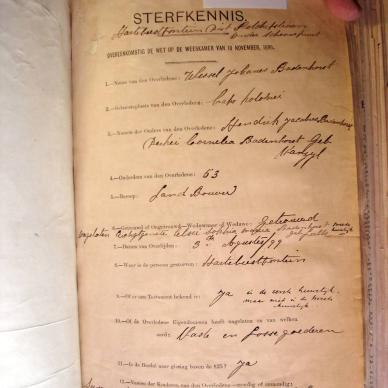 STERFKENNIS.
Hartebeestfontein Dist Potchefstroom
OVEREENKOMSTIG DE WET OP DE WEESKAMER VAN 10 NOVEMBER, 1895.
1.—Naam van den Overledene: Wessel Johannes Badenhorst
2.—Geboorteplaats van den Overledene: Kaap Kolonie
3.—Namen der Ouders van den Overledene: Hendrik Jacobus Badenhorst
Cornelia Badenhorst Geb
4.—Ouderdom van den Overledene: 63
5.—Beroep: Land Bouwer
6.—Getrouwd of Ongetrouwd—Weduwnaar of Weduwe: Getrouwd
7.—Datum van Overlijden: 3de Augustus 99
8.—Waar is de persoon gestorven: Hartebeestfontein
9.—Of er een Testament bekend is: ja in de eerste huwelijk
maar niet in de
huwelijk
10.—Of de Overledene Eigendommen heeft nagelaten en van welken
aard: Vaste en Losse goederen
11.—Is de Boedel naar gissing boven de £25? ja
12.—Namen der Kinderen van den Overledene